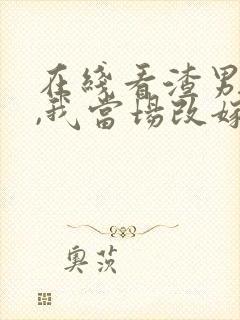 在綫看渣男
,我當場改嫁
奧茨